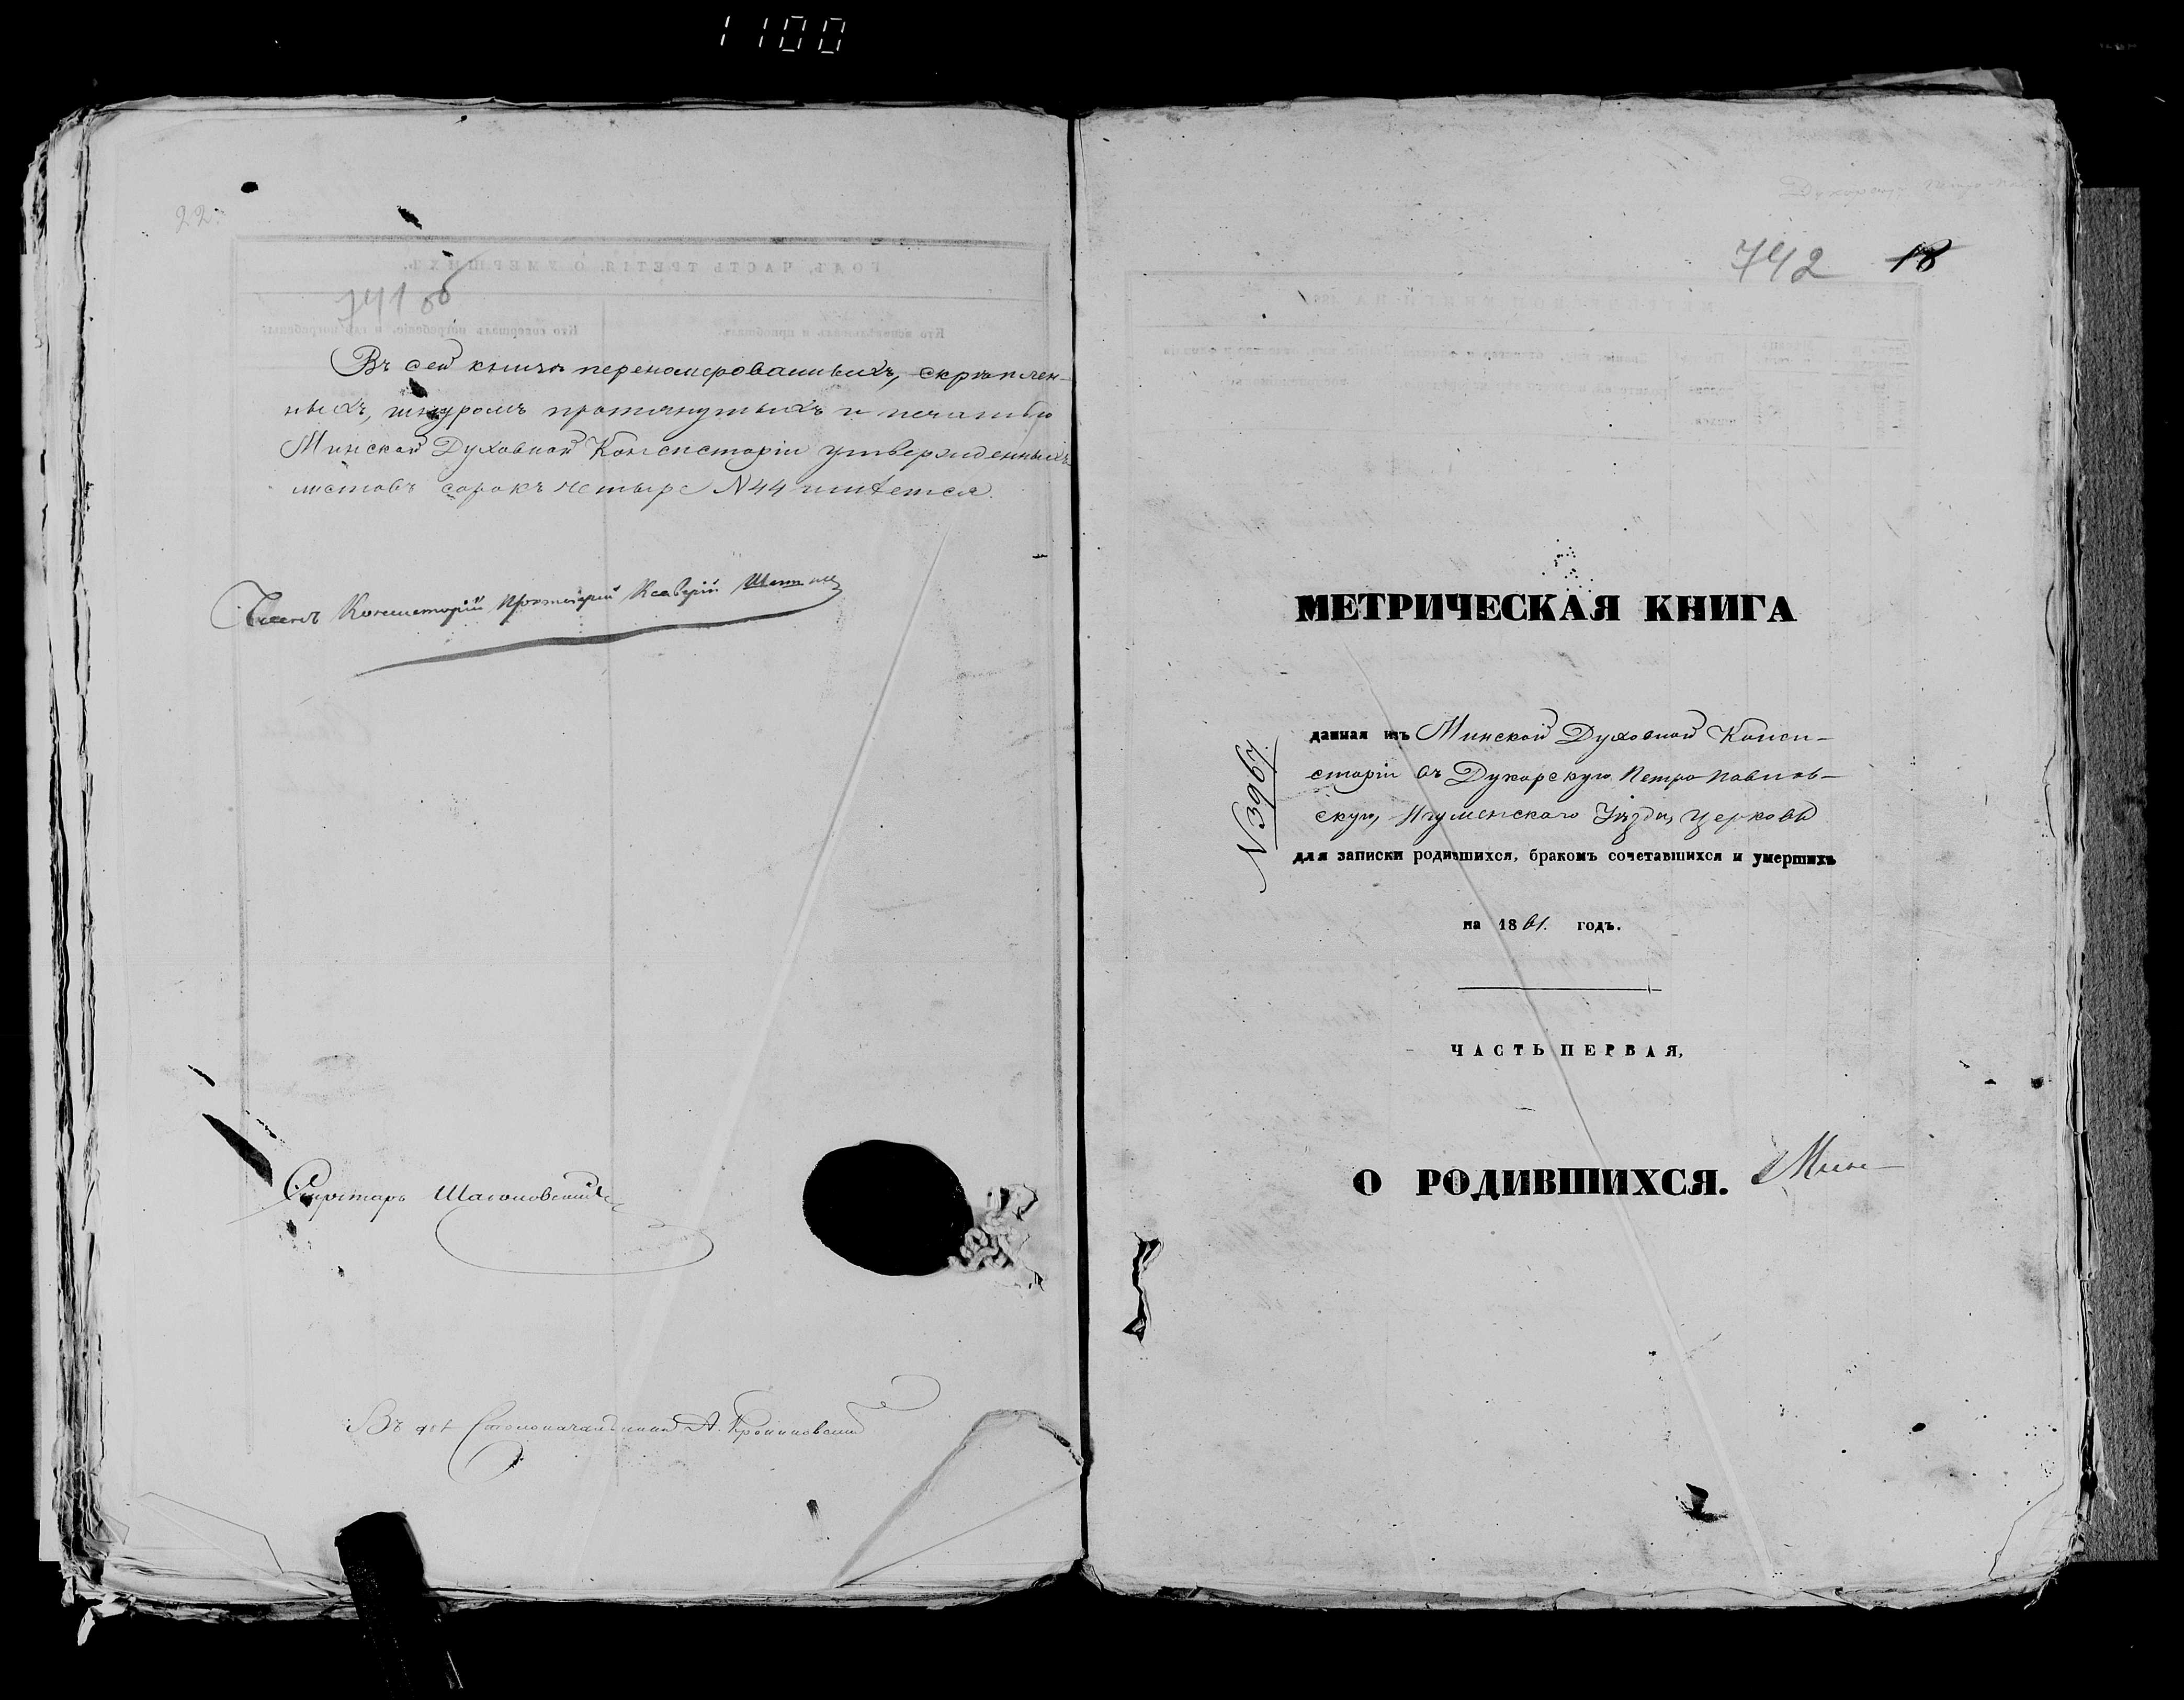 1100
22.
741 об
Въ сей книгѣ перенумерованныхъ, скрѣплен-
ныхъ, шнуромъ протянутыхъ и печатью
Минской Духовной Консисторіи утвержденныхъ
листовъ сорокъ четыре N 44 числится.
Членъ Консисторіи Протоіерей Ксаверій
Секретарь
Въ дол. Столоначальника А.
742 18
МЕТРИЧЕСКАЯ КНИГА
N 3967.
данная изъ Минской Духовной Конси-
сторіи въ Дукорскую Петро Павлов-
скую, Игуменскаго Уѣзда, церковь
для записки родившихся, бракомъ сочетавшихся и умершихъ
на 1861. годъ.
ЧАСТЬ ПЕРВАЯ,
О РОДИВШИХСЯ.